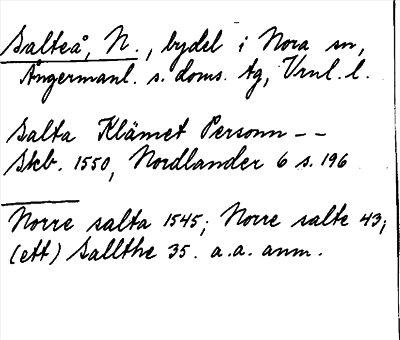 Salteå, N., bydel i Nora sn,
Ångermanl. s. doms. tg, Vrnl. l.
Salta Klämet Personn - -
Skb. 1550, Nordlander 6 s. 196
Norre salta 1545; Norre salte 43;
(ett) Sallthe 35. a.a. anm.